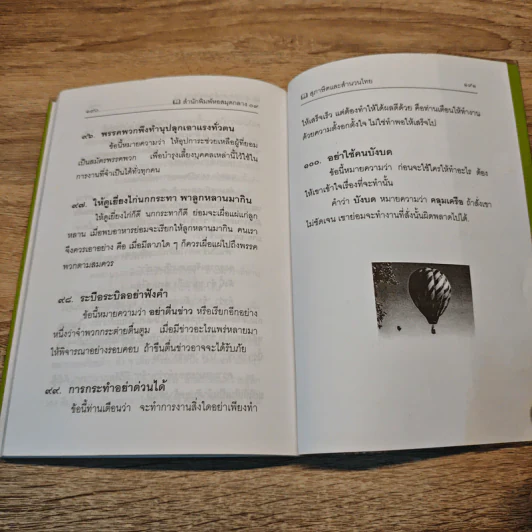 ๑๙๐
สำนักพิมพ์หอสมุดกลาง ๐๙
๙๖. พรรคพวกพึงทำนุปลุกเอาแรงทั่วตน
ข้อนี้หมายความว่า ให้อุปการะช่วยเหลือผู้ที่ยอม
เป็นสมัครพรรคพวก เพื่อบำรุงเลี้ยงบุคคลเหล่านี้ไว้ใช้ใน
การงานที่จำเป็นได้ทั่วทุกคน
๙๗. ให้ดูเยี่ยงไก่นกกระทา พาลูกหลานมากิน
ให้ดูเยี่ยงไก่ก็ดี นกกระทาก็ดี ย่อมจะเผื่อแผ่แก่ลูก
หลาน เมื่อพบอาหารย่อมจะเรียกให้ลูกหลานมากิน คนเรา
จึงควรเอาอย่าง คือ เมื่อมีลาภใด ๆ ก็ควรเผื่อแผ่ไปถึงพรรค
พวกตามสมควร
๙๘. ระบือระบิลอย่าฟังคำ
ข้อนี้หมายความว่า อย่าตื่นข่าว หรือเรียกอีกอย่าง
หนึ่งว่าจำพวกกระต่ายตื่นตูม เมื่อมีข่าวอะไรแพร่หลายมา
ให้พิจารณาอย่างรอบคอบ ถ้าขืนตื่นข่าวอาจจะได้รับภัย
๙๙. การกระทำอย่าด่วนได้
ข้อนี้ท่านเตือนว่า จะทำการงานสิ่งใดอย่าเพียงทำ
สุภาษิตและสำนวนไทย
๑๙๑
ให้เสร็จเร็ว แต่ต้องทำให้ได้ผลดีด้วย คือท่านเตือนให้ทำงาน
ด้วยความตั้งอกตั้งใจ ไม่ใช่ทำพอให้เสร็จไป
๑๐๐. อย่าใช้คนบังบด
ข้อนี้หมายความว่า ก่อนจะใช้ใครให้ทำอะไร ต้อง
ให้เขาเข้าใจเรื่องที่จะทำนั้น
คำว่า บังบด หมายความว่า คลุมเครือ ถ้าสั่งเขา
ไม่ชัดเจน เขาย่อมจะทำงานที่สั่งนั้นผิดพลาดไปได้